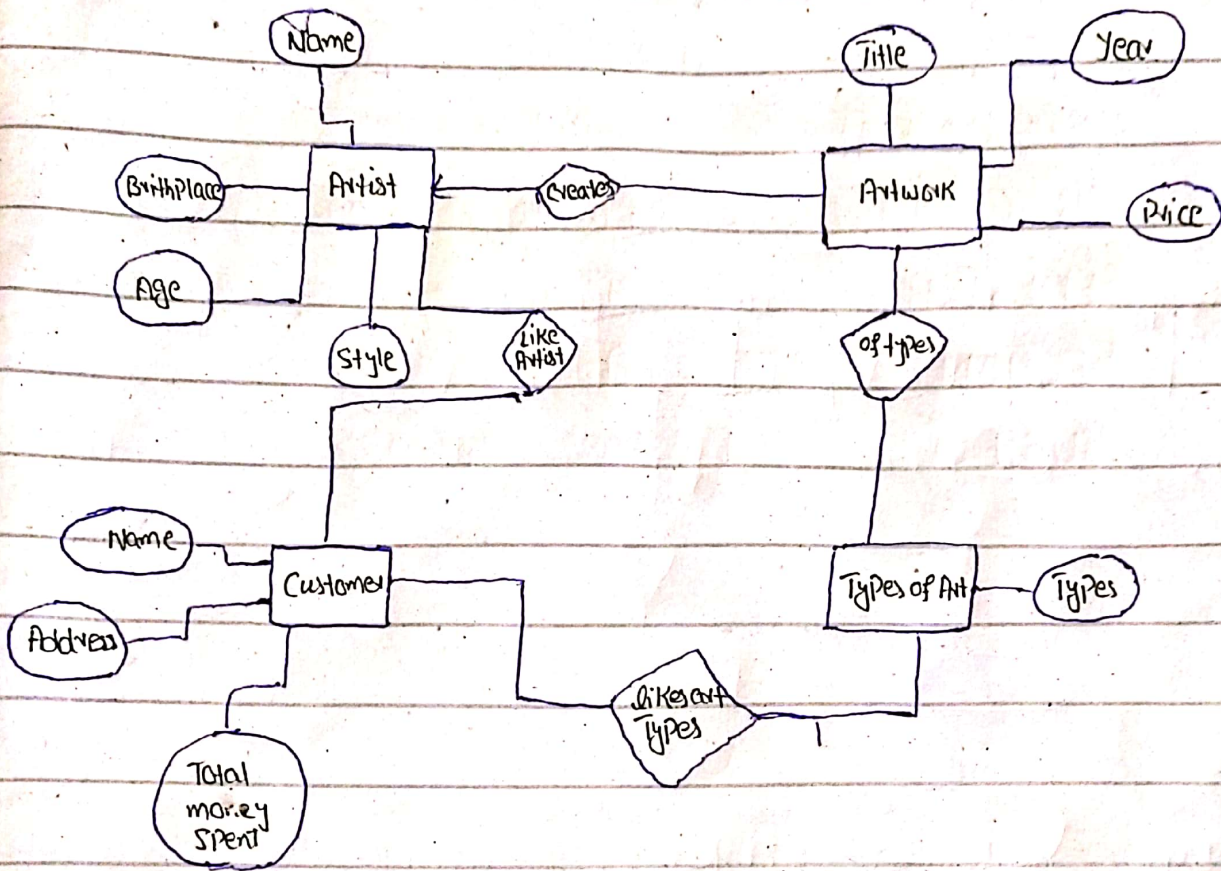 Name
Title
Year
BrithPlace
Artist
Creates
Artwork
Price
Age
Style
Like
Artist
of types
Name
Customer
Types of Art
Types
Address
likesart
Types
Total
money
Spent